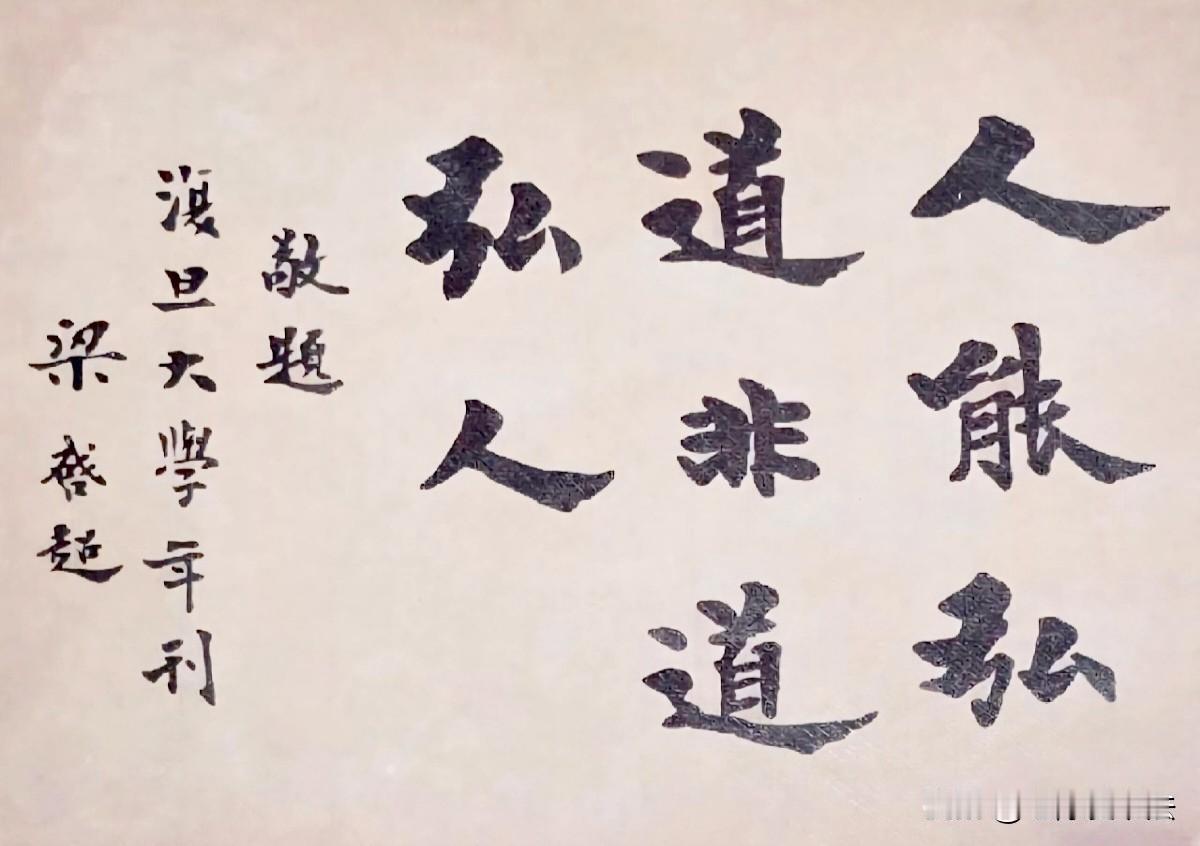 人能弘
道非道
弘人
敬題
復旦大學年刊
梁啓超